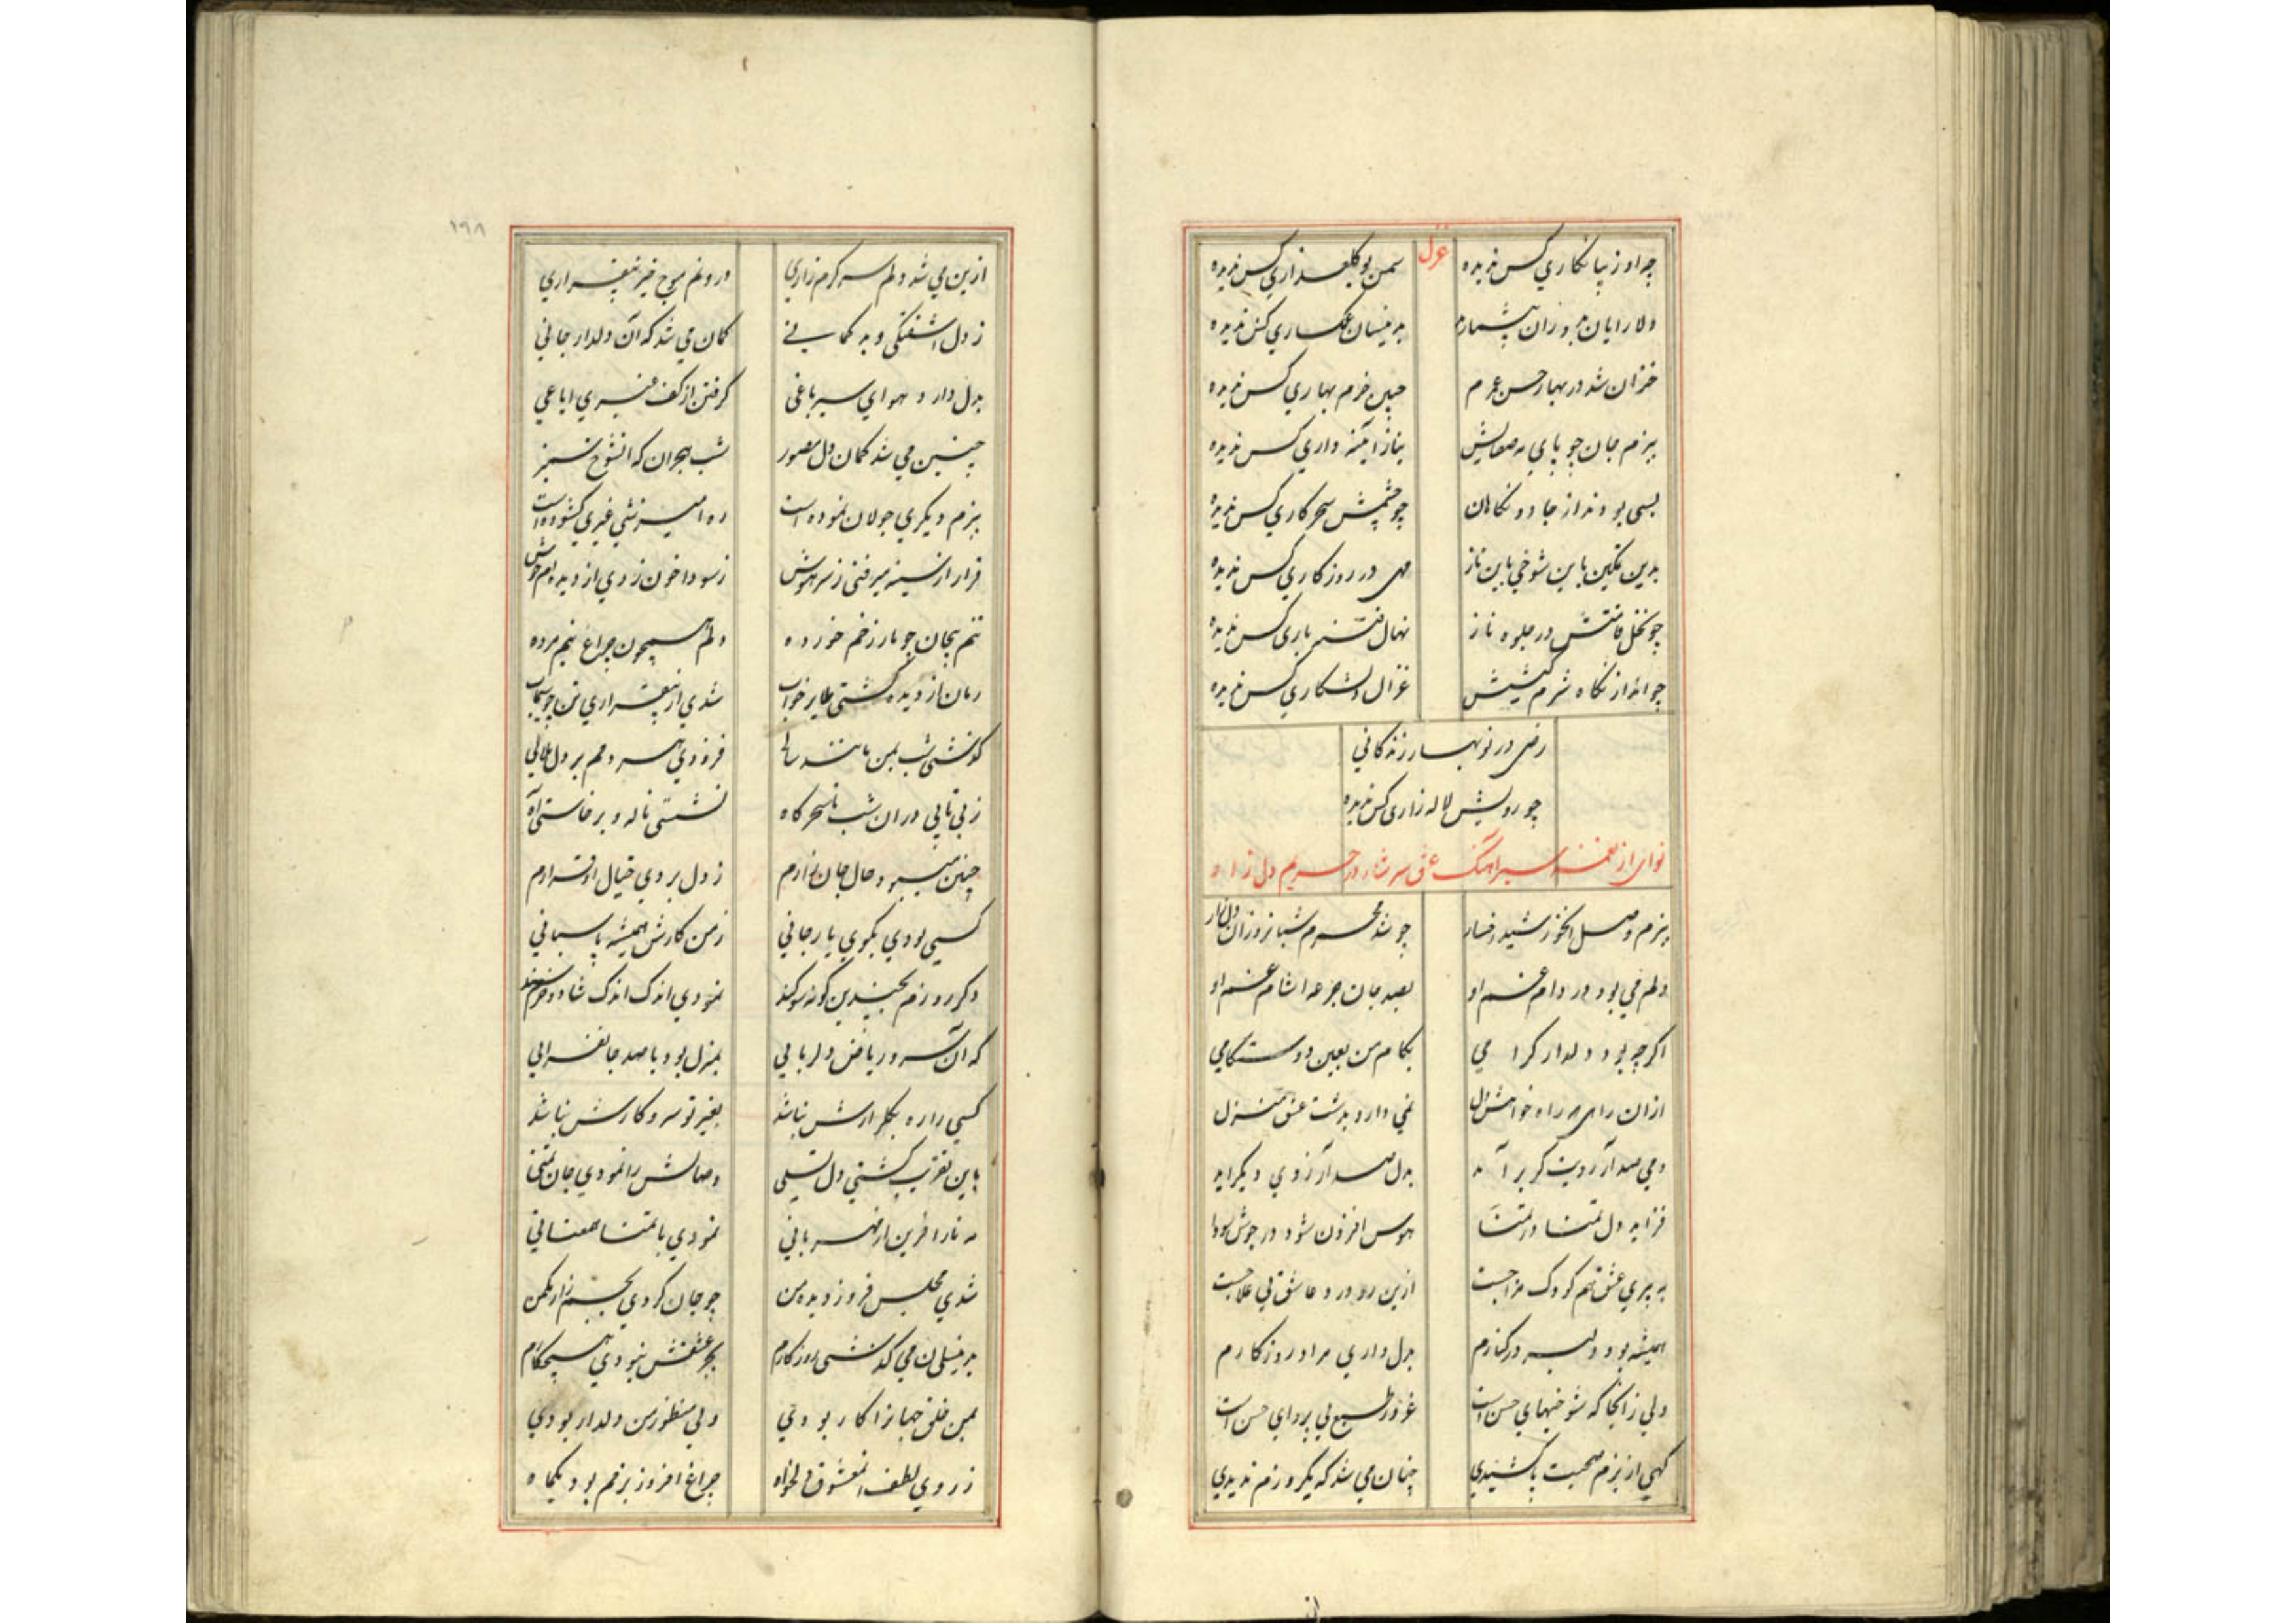 غزل
چه او زیبا نکاري کس ندیده سمن بو کلعذاري کس ندیده
بدینسان غمکساري کس ندیده
خزان شد در بهار حسن عمرم چنین خرم بهاري کس ندیده
ببزم جان چو باي به صفایش بناز آینه داري کس ندیده
بسی بودند از جادو نکاهان چو چشمش سحر کاري کس ندیده
بدین تمکین باین شوخي باین ناز مهی در روزکاري کس ندیده
چو نخل قامتش در جلوه ناز نهال فتنه باري کس ندیده
چو انداز نکاه شرم کیشش غزال دلشکاري کس ندیده
رضی در نوبهار زندکاني
چو رویش لاله زاري کس ندیده
نواي از نغمه سیراهنک عشق سرشار در حریم دل زار
ببزم وصل انخورشید رخسار چو شد محرم شبانروزان دل زار
دلم مي بود در دام غم او بصد جان جرعه اشام غم او
اکرچه بود دلدار کرامي بکام من بعین دوستکامي
ازان راهی که راه خواهش دل نمي دارد بدشت عشق منزل
دمي صد آرزویت کر برآید بدل صد آرزوي دیکر آید
فزاید دل تمنا در تمنا هوس افزون شود در جوش سودا
به پیري عشق هم کودک مزاجست ازین رو درد عاشق بي علاجست
همیشه بود دلبر در کنارم بدل داري مراد روزکارم
ولي زانجا که شوخیهاي حسن است غرور طبع بي پرواي حسن است
کهي از بزم صحبت پا کشیدي چنان مي شد که یکروزم ندیدي
۱۹۸
ازین مي شد دلم سرکرم زاري درونم موج خیز بیقراري
ز دل اشفتکی و بدکماني کمان مي شد که آن دلدار جاني
بدل دارد هواي سیر باغی کرفتن از کف غیري ایاغي
چنین مي شد کمان دل مصور شب هجران که انشوخ
ببزم دیکري جولان نموده است ره امیزش غیري کشوده است
قرار از سینه میرفتی ز سر هوش ز سودا خون زدي از دیده ام جوش
تنم پیچان چو مار زخم خورده دلم همچون چراغ نیم مرده
رمان از دیده کشتی طایر خواب شدي از بیقراري تن چو سیماب
کذشتی شب بمن مانند سالی فزودي هر دمم بر دل ملالي
ز بي تابي دران شب تا سحرکاه نشستی ناله و برخاستی آه
چنین میبود حال جان زارم ز دل بردي خیال او قرارم
کسي بودي بکوي یار جاني ز من کارش همیشه پاسباني
دکر روزم بچندین کونه سوکند نمودي اندک اندک شاد و خرسند
که آن سرو ریاض دلربایي بمنزل بود با صد جانفزایي
کسي را ره بکلزارش نباشد بغیر تو سر و کارش نباشد
باین تقریب کشتي دل تسلی وصالش را نمودي جان تمنا
مه ناز افرین از مهرباني نمودي با تمنا همعناني
شدي مجلس فروز دیده من چو جان کردي بجسم زار مکمن
بدینسان مي کذشتی روزکارم بجز عشقش نبودي هیچ کارم
بمن خلق جهانرا کار بودي ولي منظور من دلدار بودي
ز روي لطف انمعشوق دلخواه چراغ افروز بزمم بود یکماه